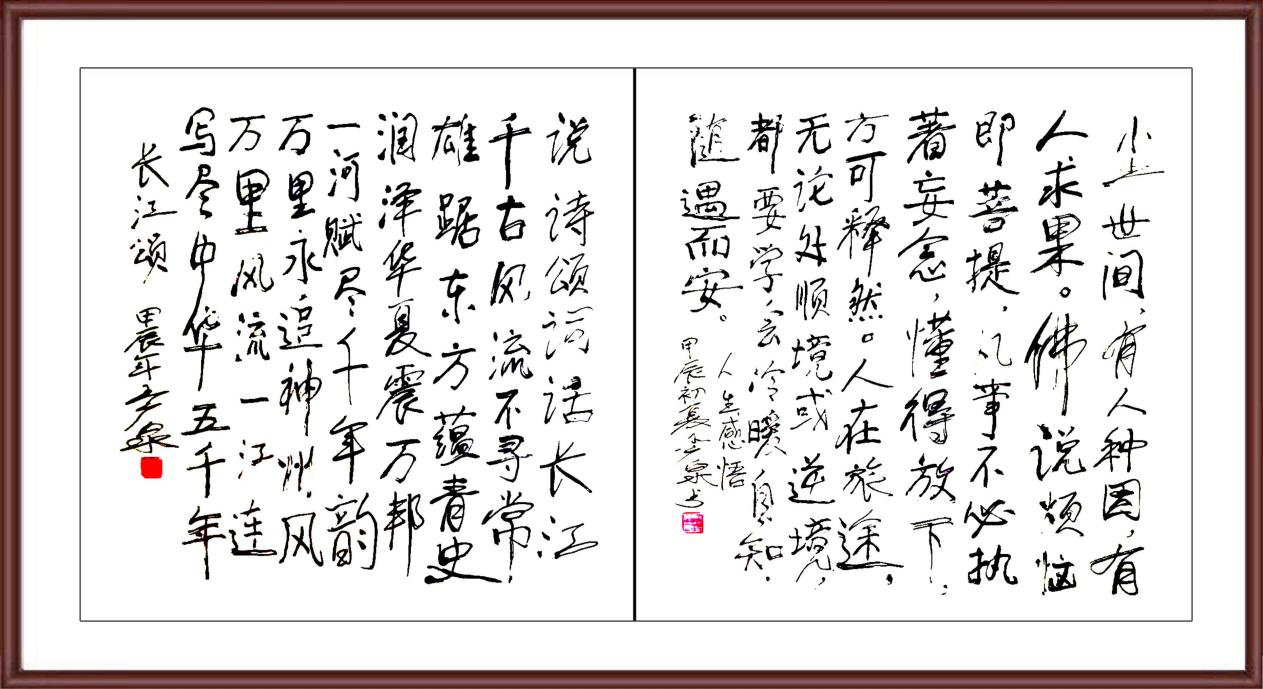 尘世间，有人种因，有
人求果。佛说烦恼
即菩提，凡事不必执
著妄念，懂得放下，
方可释然。人在旅途，
无论处顺境或逆境，
都要学会冷暖自知，
随遇而安。
人生感悟
甲辰初夏泉书
说诗颂词话长江
千古风流不寻常，
雄踞东方蕴青史
润泽华夏震万邦
一河赋尽千年韵
万里永追神州风
万里风流一江连
写尽中华五千年
长江颂 甲辰年泉